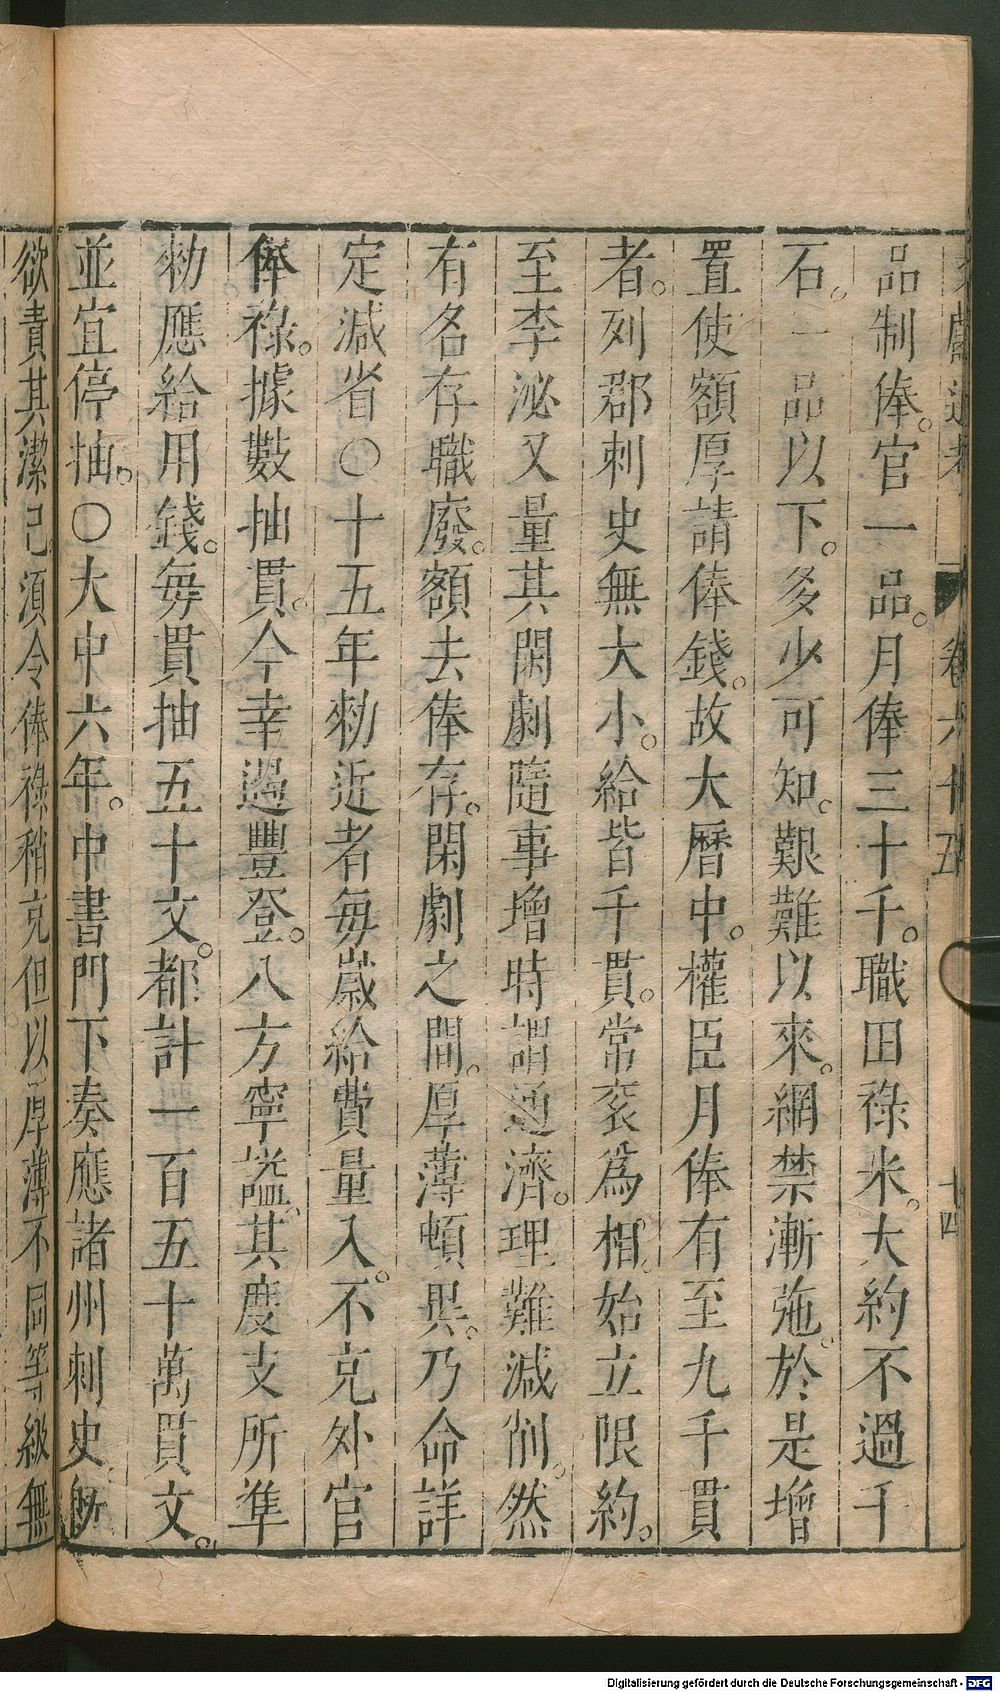 文獻通考 卷六十五 十四
品制俸。官一品。月俸三十千。職田祿米。大約不過千
石。一品以下。多少可知。艱難以來。網禁漸弛。於是增
置使額厚請俸錢。故大曆中。權臣月俸有至九千貫
者。列郡刺史無大小。給皆千貫。常袞爲相。始立限約。
至李泌又量其閑劇隨事增時謂通濟。理難減削。然
有名存職廢。額去俸存。閑劇之間。厚薄頓異。乃命詳
定減省○十五年勑近者每歲給費量入。不充外官
俸祿。據數抽貫。今幸遇豐登。八方寧謐。其度支所準
勑應給用錢。每貫抽五十文。都計一百五十萬貫文。
並宜停抽。○大中六年。中書門下奏應諸州刺史。
欲責其潔己。須令俸祿稍充但以厚薄不同等級無
Digitalisierung gefördert durch die Deutsche Forschungsgemeinschaft - DFG